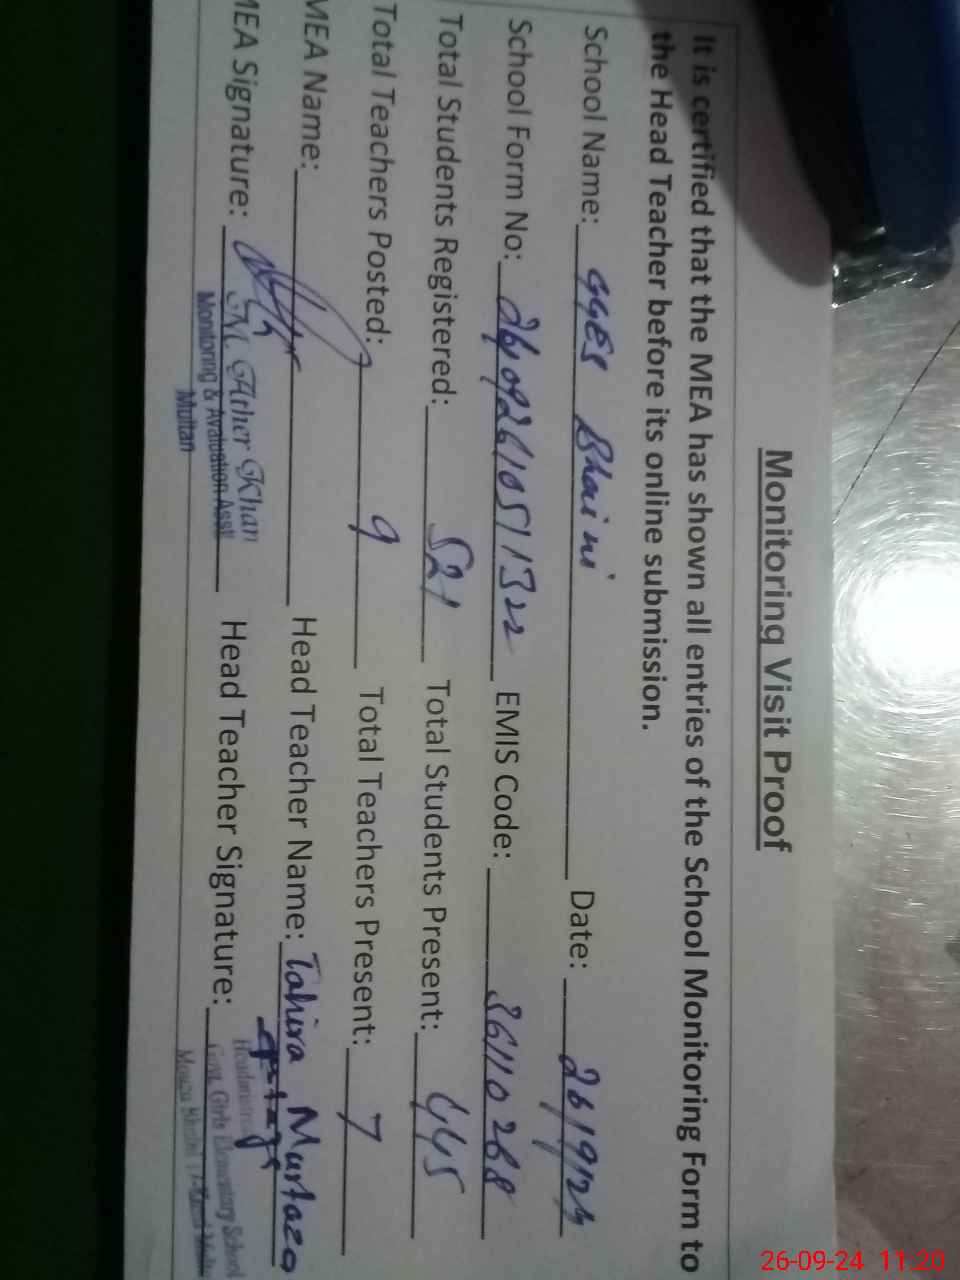 Monitoring Visit Proof
It is certified that the MEA has shown all entries of the School Monitoring Form to
the Head Teacher before its online submission.
School Name: GGES Bhaini Date: 26/9/24
School Form No: EMIS Code: 36110268
Total Students Registered: 521 Total Students Present: 445
Total Teachers Posted: 9 Total Teachers Present: 7
MEA Name: Head Teacher Name: Tahira Murtaza
MEA Signature: Head Teacher Signature:
M. Ather Khan
Monitoring & Avaluation Asstt
Multan
Govt. Girls Elementary School
Mouza Bhaini
26-09-24 11:20